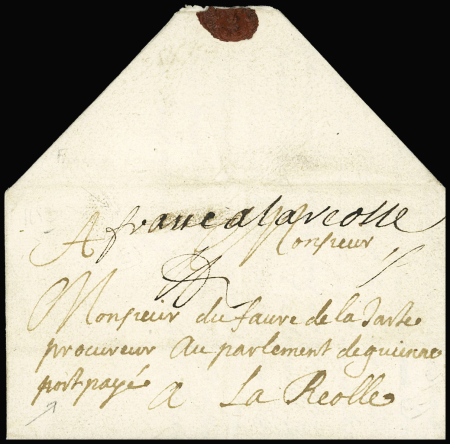 franc a la reolle
A Monsieur
Monsieur du faure de la
procureur au parlement de guienne
port payé
a La Reolle